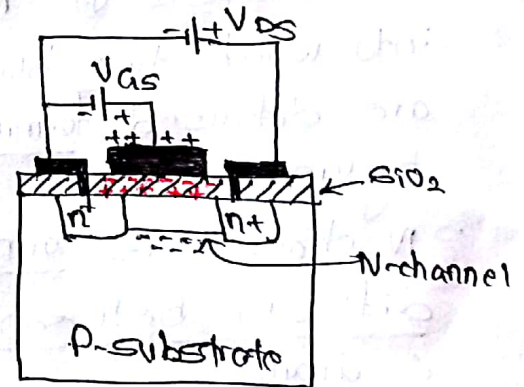 - + VDS
VGS
- +
++ ++
SiO2
n+ n+
N-channel
P-substrate